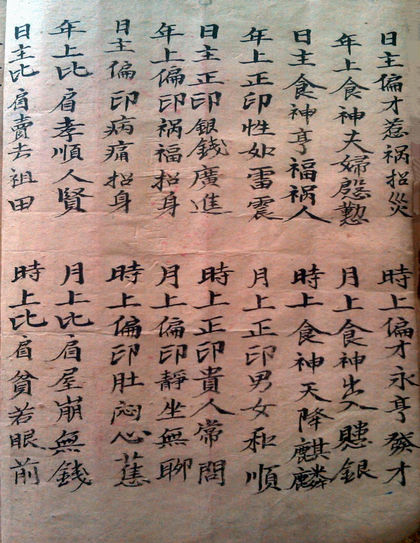 日主偏才惹祸招災 時上偏才永亨發才
年上食神夫婦慇懃 月上食神出入銀
日主食神亨福祸人 時上食神天降麒麟
年上正印性如雷震 月上正印男女和順
日主正印銀錢廣進 時上正印貴人常問
年上偏印祸福招身 月上偏印靜坐無聊
日主偏印病痛招身 時上偏印肚悶心蕉
年上比肩孝順人賢 月上比肩屋崩無錢
日主比肩賣去祖田 時上比肩貧若眼前